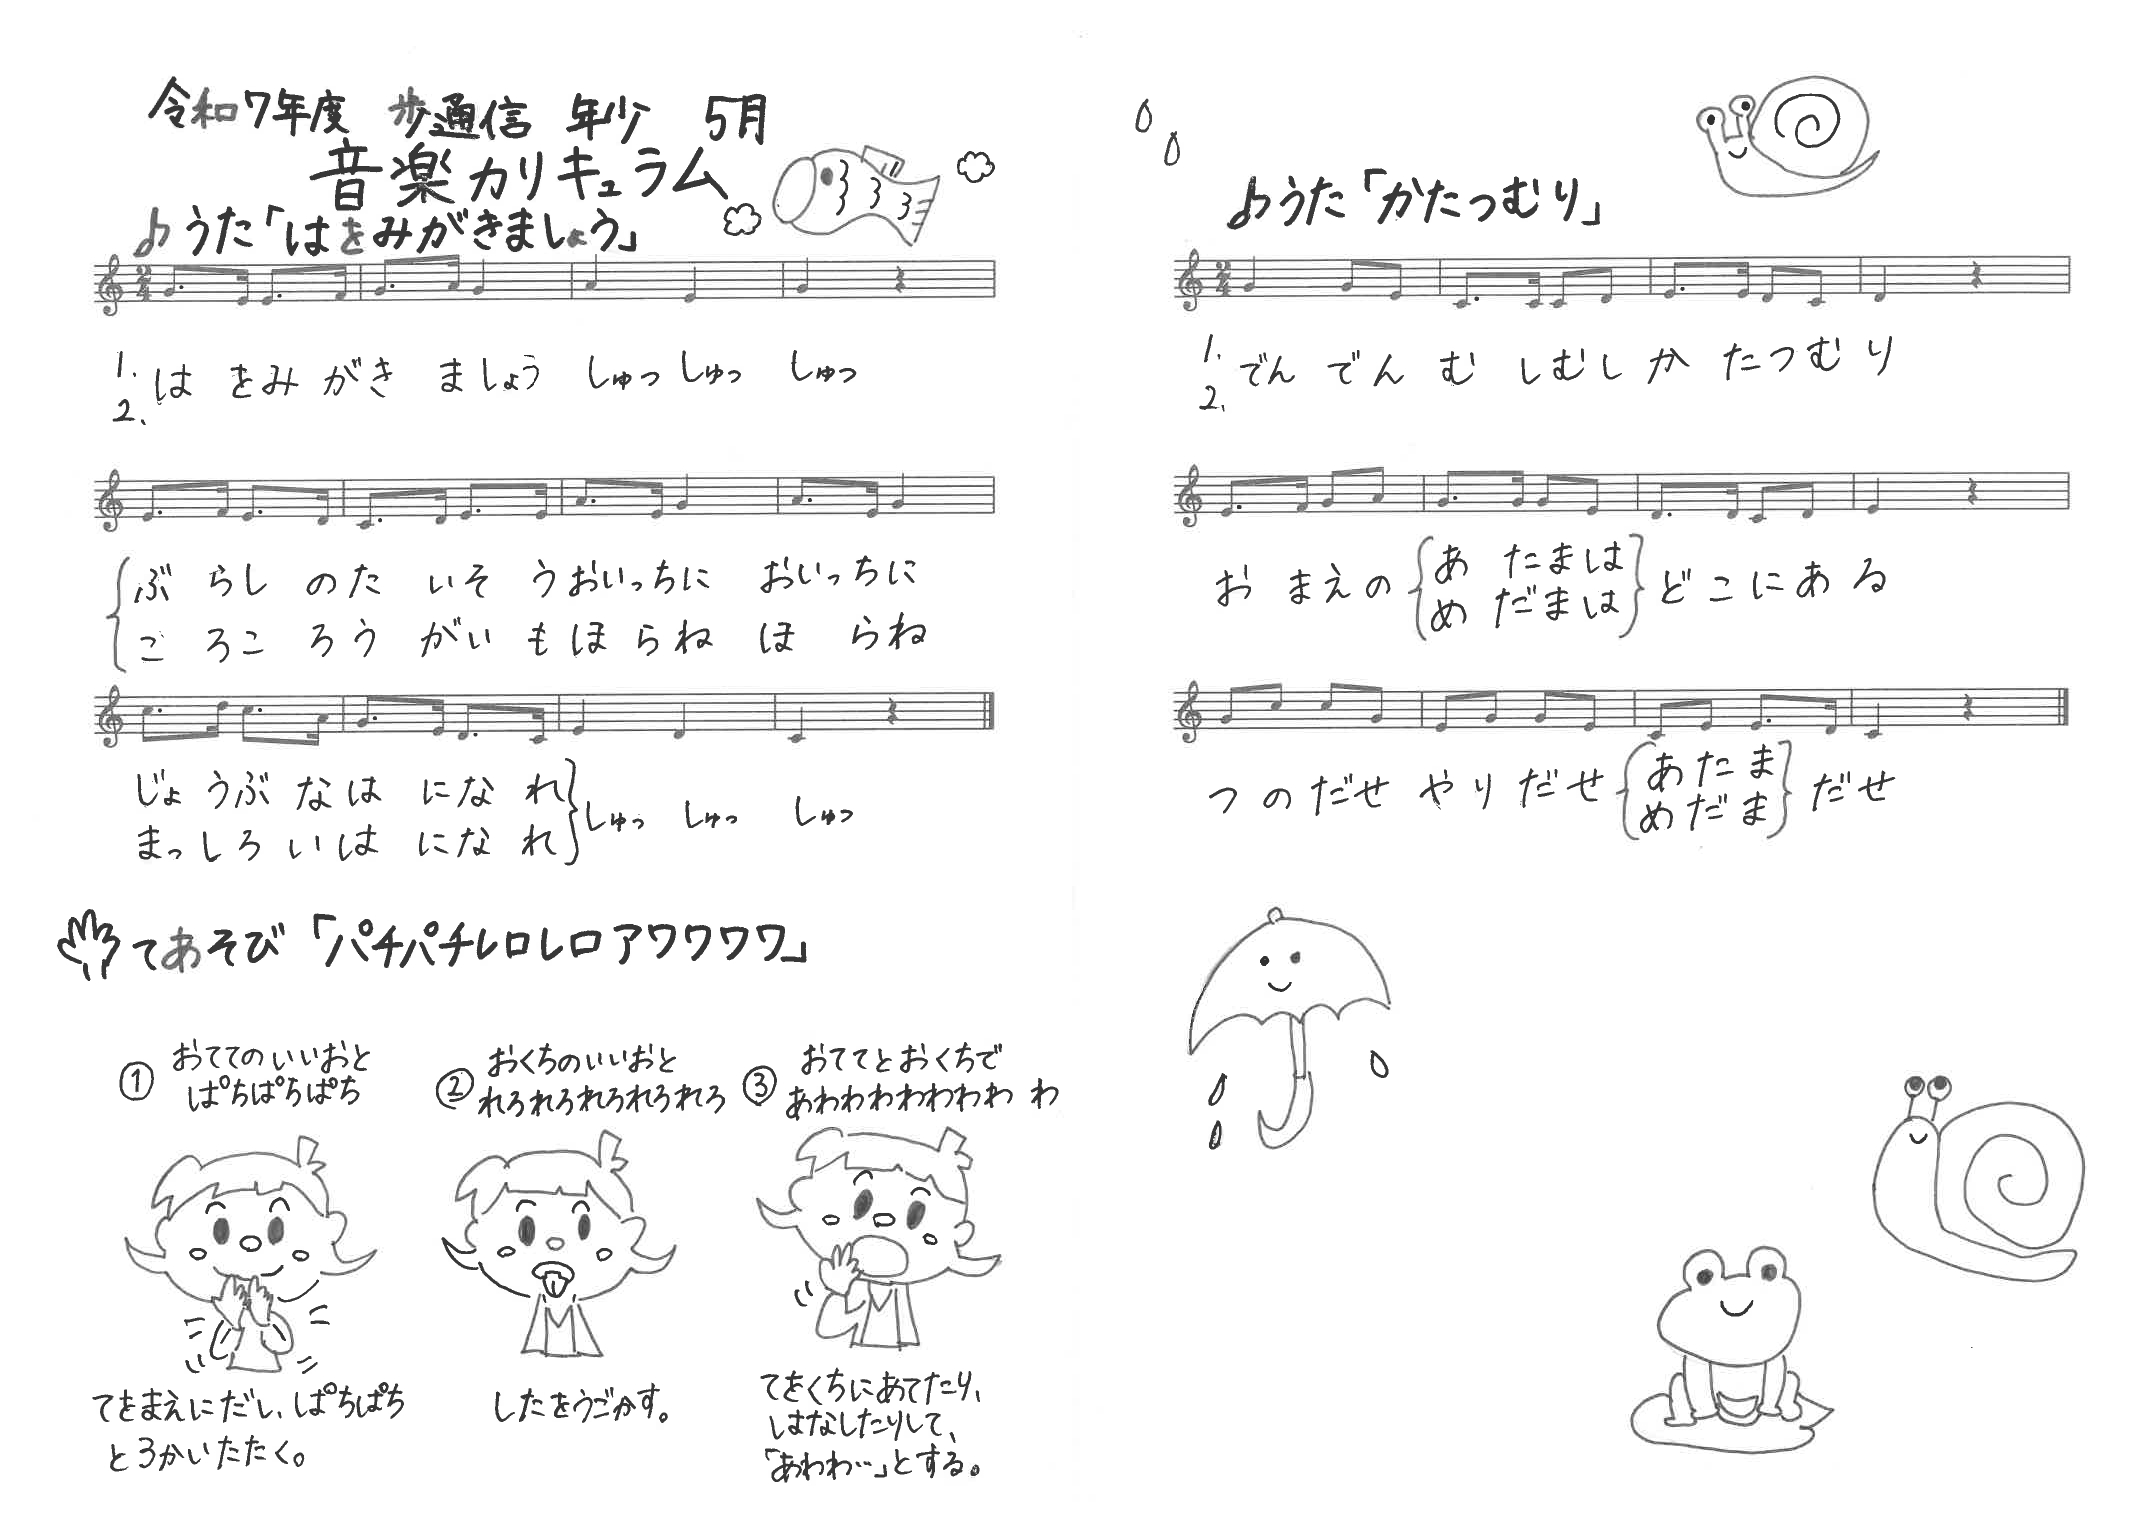 令和7年度 歩通信 年少 5月
音楽カリキュラム
♪うた「はをみがきましょう」
1. は をみ がき ましょう しゅっ しゅっ しゅっ
2.
ぶ らし のた いそ うおいっちに おいっちに
ご ろこ ろう がい もほ らね ほ らね
じょ うぶ なは にな れ
まっしろ いは にな れ
しゅっ しゅっ しゅっ
てあそび「パチパチレロレロアワワワワ」
① おててのいいおと
ぱちぱちぱち
てをまえにだし、ぱちぱち
と3かいたたく。
② おくちのいいおと
れろれろれろれろれろ
したをうごかす。
③ おててとおくちで
あわわわわわわわ わ
てをくちにあてたり、
はなしたりして、
「あわわ…」とする。
♪うた「かたつむり」
1. でん でん む しむし か たつむ り
2.
お まえの あ たまは どこにあ る
め だまは
つ のだせ やり だせ あたま だせ
めだま